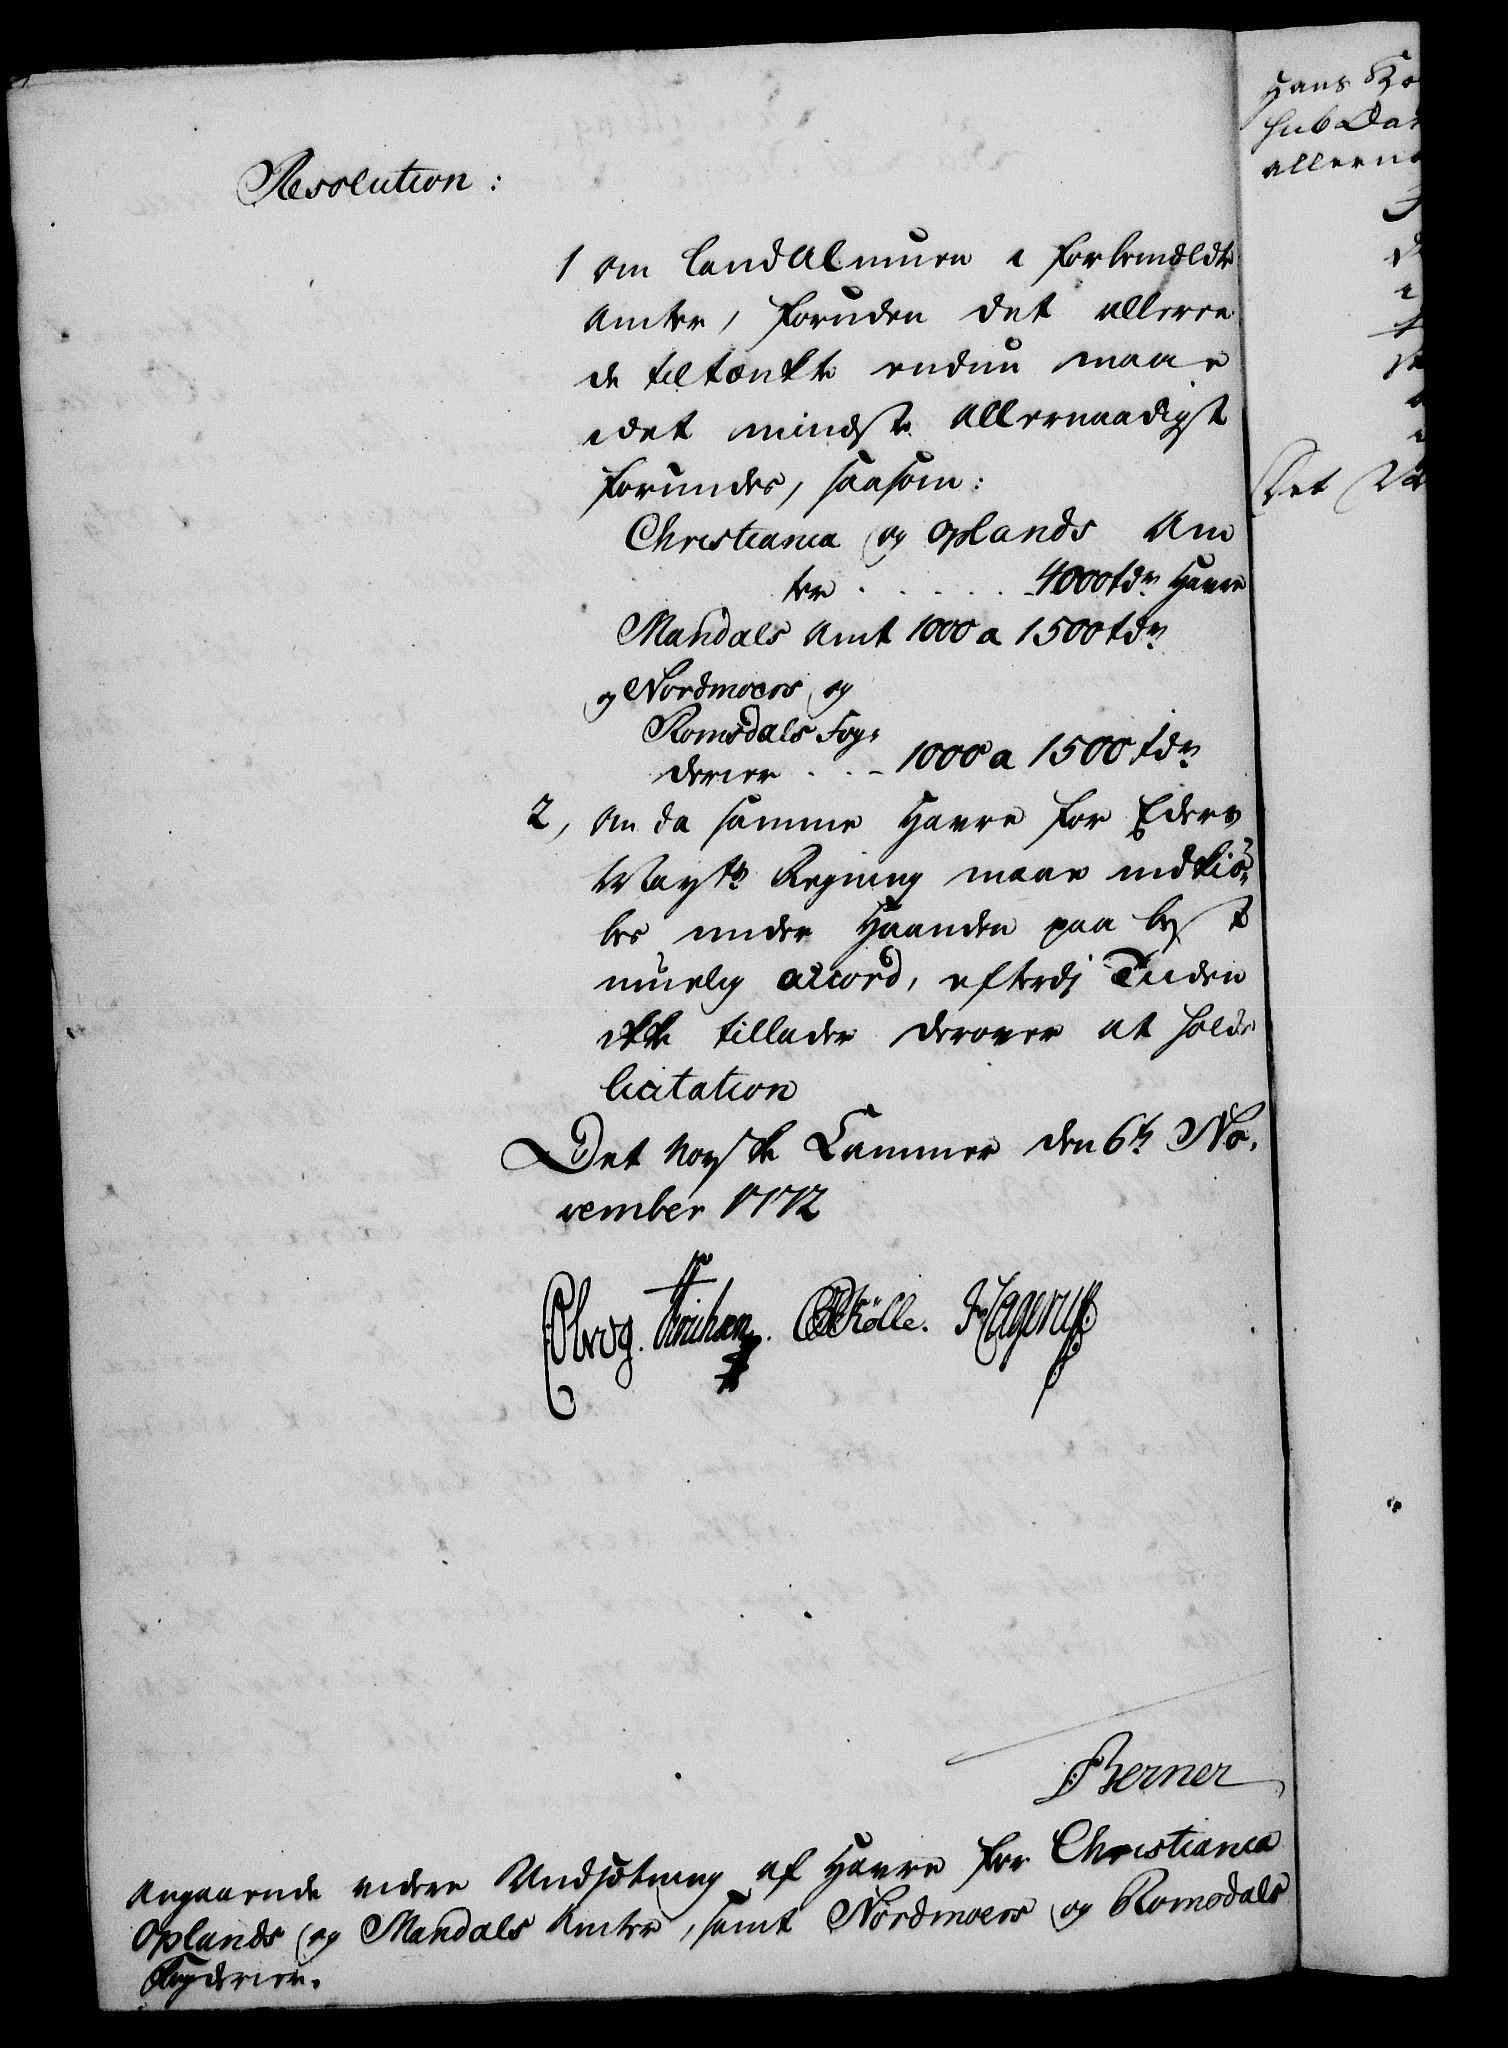 Resolution:
1 om LandAlmuen i forbemeldte
Amter, foruden det allere
de tiltænkte endnu maae
idet mindste allernaadigst
forundes, saasom:
Christiania og Oplands Am
ter . . . . . 4000 tdr Havre
Mandals Amt 1000 a 1500 tdr
og Nordmoers og
Romsdals Fog-
derier . . . 1000 a 1500 tdr
2, Om da samme Havre for Eders
Mayts Regning maae indkiø-
bes under Haanden paa best
muelig accord, efterdi Tiiden
ikke tillader derover at holde
licitation
Det Norske Cammer den 6te No-
vember 1772
Berner
Angaaende videre Undsætning af Havre for Christiania
Oplands og Mandals Amter, samt Nordmoers og Romsdals
Fogderier.
Hans Ko
allern
Det